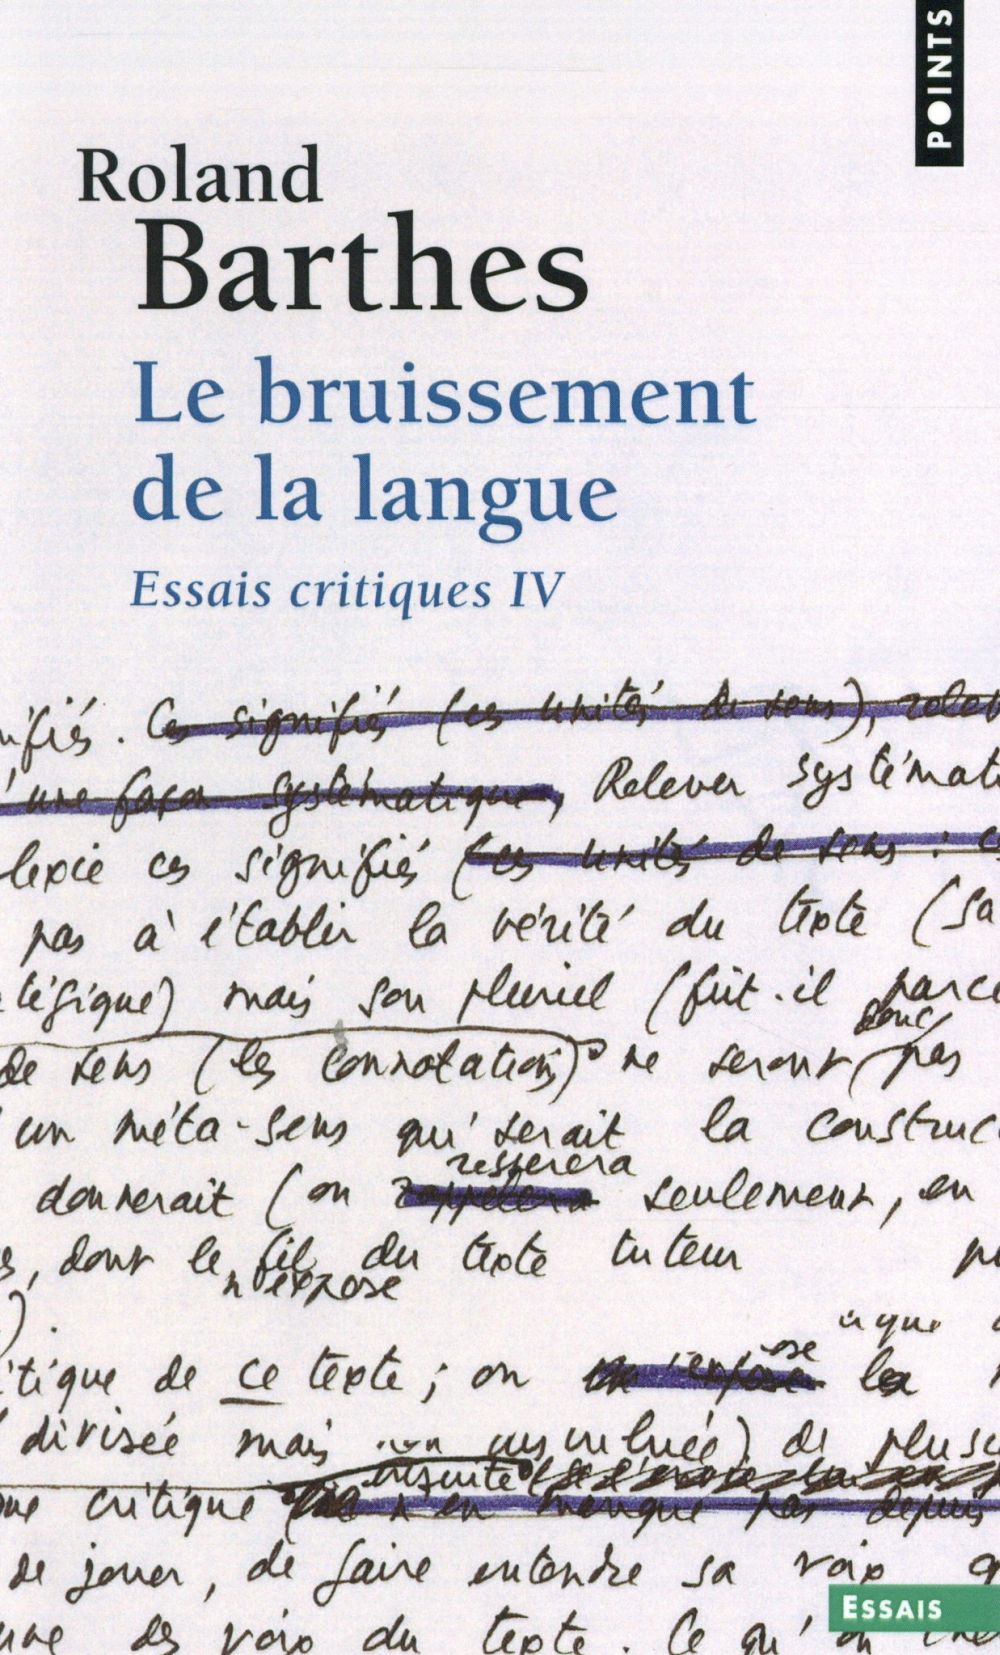 POINTS
Roland
Barthes
Le bruissement
de la langue
Essais critiques IV
nifiés. Ces signifiés (ces unités de sens), relev
d'une façon systématique, Relever systémati
lexie ces signifiés (ces unités de sens : ce
pas à établir la vérité du texte (sa
tégique) mais son pluriel (fût-il parce
donc
de sens (les connotations) ne seront pas
un méta-sens qu'serait la construc
resserera
donnerait (on rappelera seulement, en
, dont le fil du texte tuteur
n'expose
).
itique de ce texte; on la
divisée mais de plus
ensuite
ue critique n'en manque pas depuis
de jouer, de faire entendre sa voix q
une des voix du texte. Ce qu'on
ESSAIS